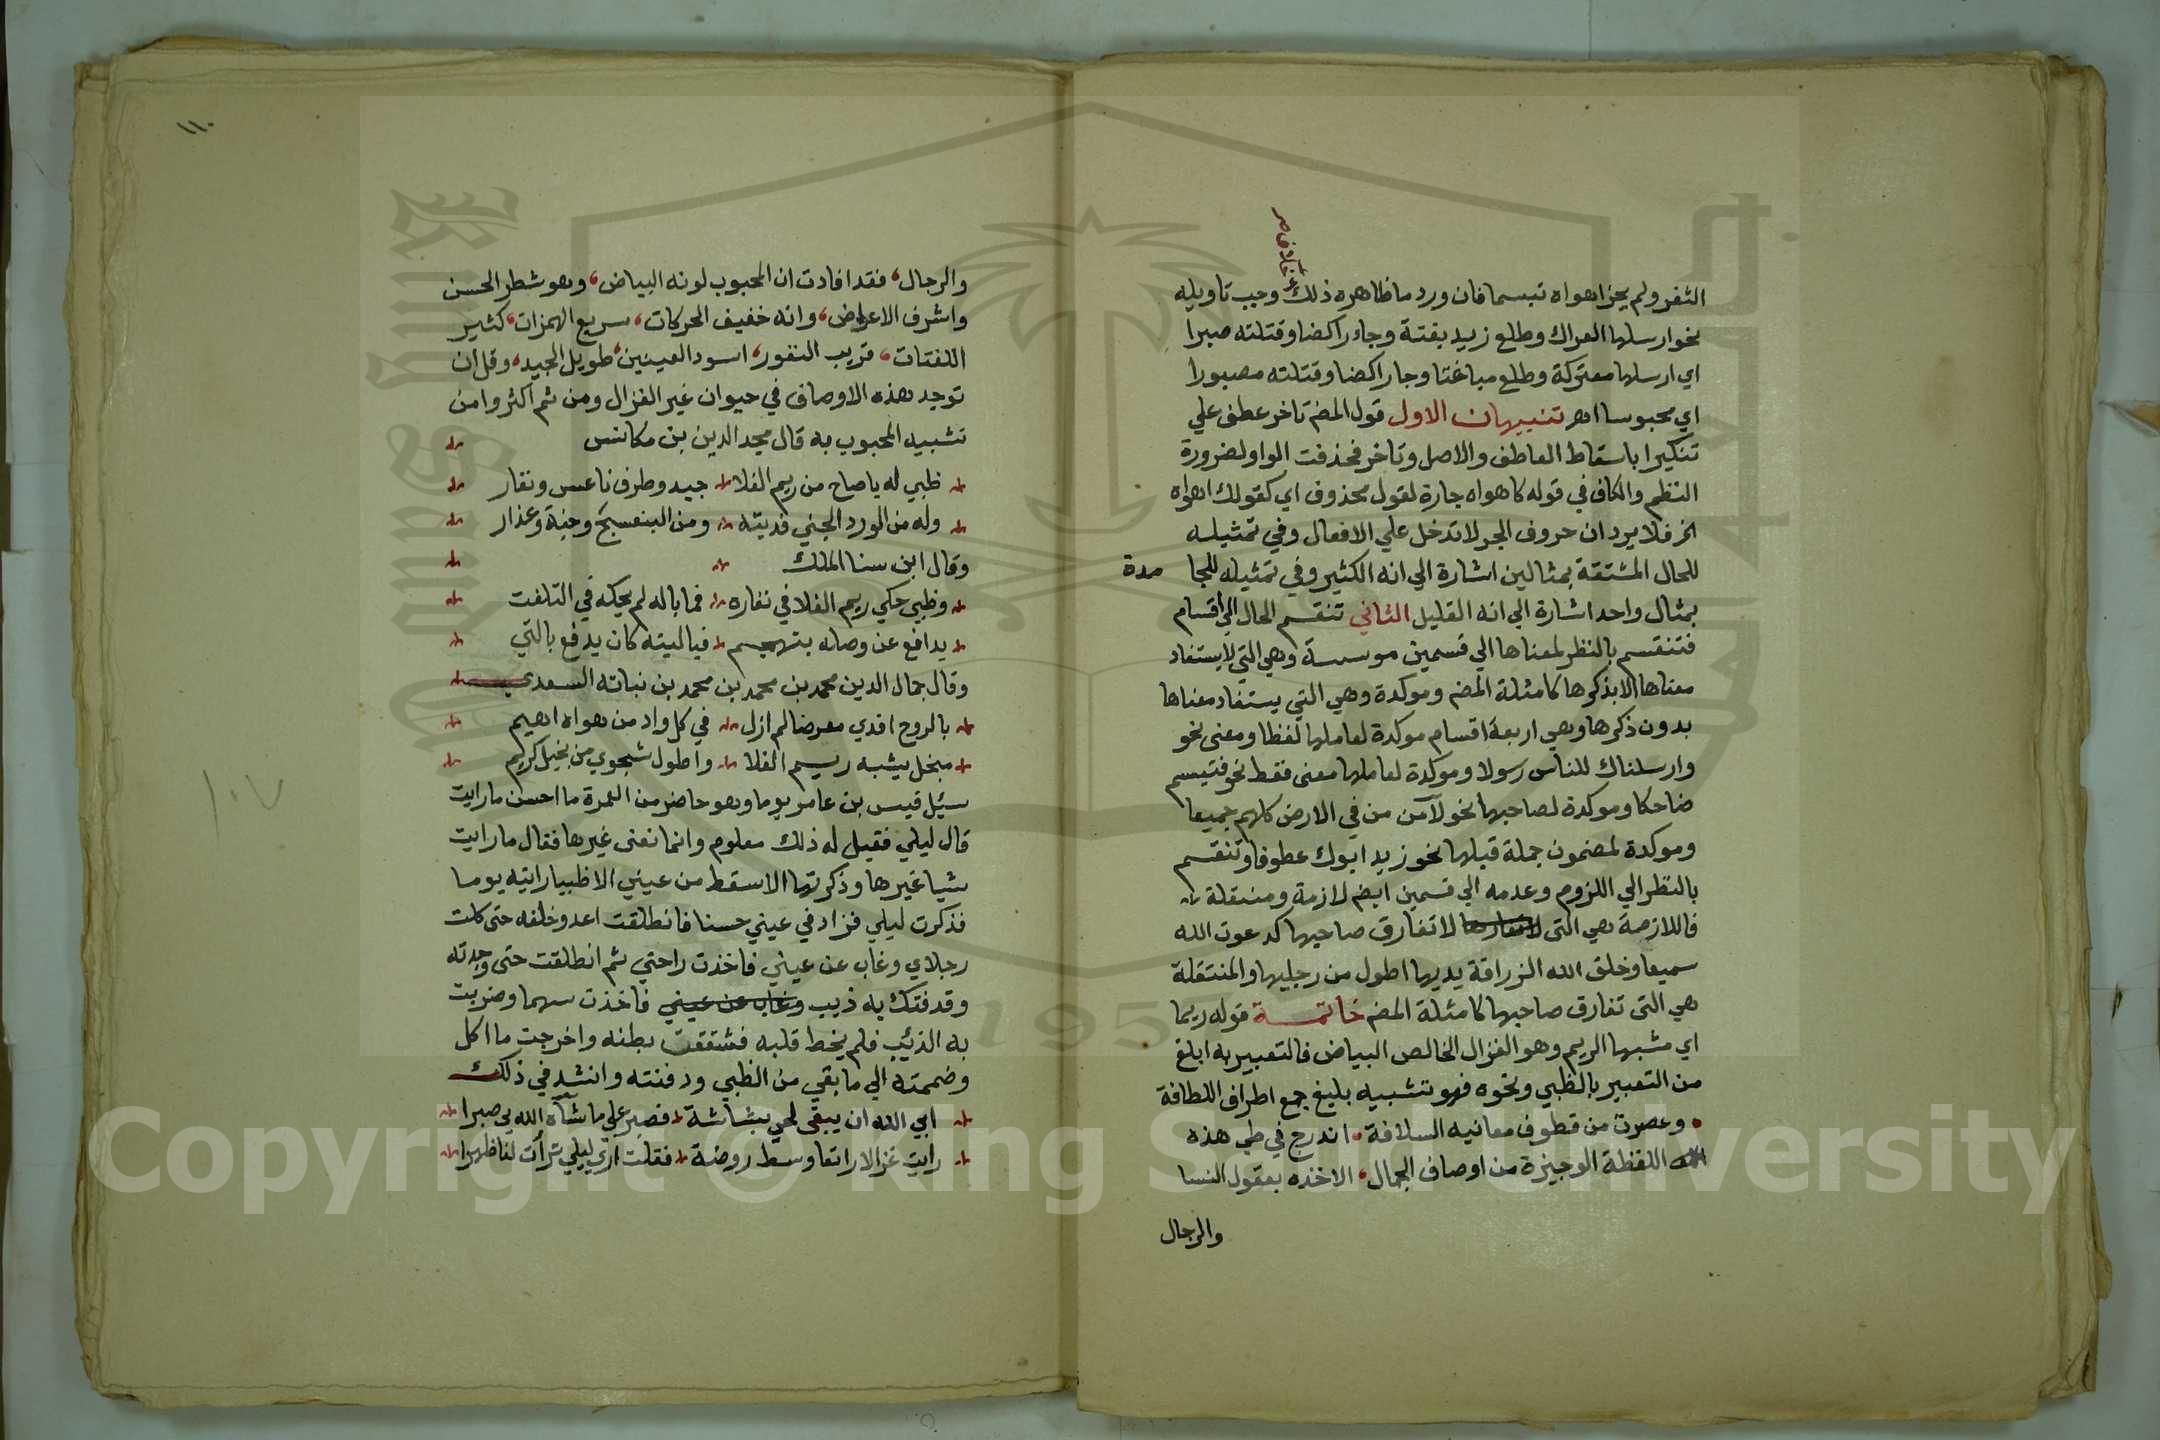 الثغر ولم يجز اهواه تبسما فان ورد ما ظاهره ذلك وجب تاويله
نحو ارسلها العراك وطلع زيد بغتة وجاء راكضا وقتلته صبرا
اي ارسلها معتركة وطلع مباغتا وجا راكضا وقتلته مصبورا
اي محبوسا اهـ تنبيهان الاول قول المض تاخر عطف علي
تنكيرا باسقاط العاطف والاصل وتاخر فحذفت الواو لضرورة
النظم والكاف في قوله كاهواه جارة لقول محذوف اي كقولك اهواه
الخ فلا يرد ان حروف الجر لا تدخل علي الافعال وفي تمثيله
للحال المشتقة بمثالين اشارة الي انه الكثير وفي تمثيله للجا مدة
بمثال واحد اشارة الي انه القليل الثاني تنقسم الحال الي اقسام
فتنقسم بالنظر لمعناها الي قسمين موسسة وهي التي لا يستفاد
معناها الا بذكرها كامثلة المض وموكدة وهي التي يستفاد معناها
بدون ذكرها وهي اربعة اقسام موكدة لعاملها لفظا ومعنى نحو
وارسلناك للناس رسولا وموكدة لعاملها معنى فقط نحو فتبسم
ضاحكا وموكدة لصاحبها نحو لآمن من في الارض كلهم جميعا
وموكدة لمضمون جملة قبلها نحو زيد ابوك عطوفا وتنقسم
بالنظر الي اللزوم وعدمه الي قسمين ايض لازمة ومنتقلة
فاللازمة هي التى لا تفارق صاحبها كدعوت الله
سميعا وخلق الله الزرافة يديها اطول من رجليها والمنتقلة
هي التى تفارق صاحبها كامثلة المض خاتمـــة قوله ريما
اي مشبها الريم وهو الغزال الخالص البياض فالتعبير به ابلغ
من التعبير بالظبي ونحوه فهو تشبيه بليغ جمع اطراف اللطافة
وعصرت من قطوف معانيه السلافة اندرج في طي هذه
اللفظة الوجيزة من اوصاف الجمال الاخذه بعقول النسا
والرجال
١١٠
والرجال فقد افادت ان المحبوب لونه البياض وهو شطر الحسن
واشرف الاعراض وانه خفيف الحركات سريع الهمزات كثير
اللفتات قريب النفور اسود العينين طويل الجيد وقل ان
توجد هذه الاوصاف في حيوان غير الغزال ومن ثم اكثروا من
تشبيه المحبوب به قال مجد الدين بن مكانس
ظبي له يا صاح من ريم الفلا جيد وطرف ناعس ونفار
وله من الورد الجني فديته ومن البنفسج وجنة وعذار
وقال ابن سنا الملك
وظبي حكي ريم الفلا في نفاره فما باله لم يحكه في التلفت
يدافع عن وصله بتهجم فيا ليته كان يدفع بالتي
وقال جمال الدين محمد بن محمد بن محمد بن نباته السعدي
بالروح افدي معرضا لم ازل في كل واد من هواه اهيم
مبخل يشبه ريم الفلا واطول شجوي من بخيل كريم
سئيل قيس بن عامر يوما وهو حاضر من العمرة ما احسن ما رايت
قال ليلي فقيل له ذلك معلوم وانما نعنى غيرها فقال ما رايت
شيا غيرها وذكرتها الا سقط من عيني الا ظبيا رايته يوما
فذكرت ليلي فزاد في عيني حسنا فانطلقت اعدو خلفه حتى كلت
رجلاي وغاب عن عيني فاخذت راحتي ثم انطلقت حتى وجدته
وقد فتك به ذيب وغاب عن عيني فاخذت سهما وضربت
به الذئيب فلم يخط قلبه فشققت بطنه واخرجت ما اكل
وضممته الي ما بقي من الظبي ودفنته وانشد في ذلك
ابي الله ان يبقى لحي بشاشة فصبر علي ما شآه الله بي صبرا
رايت غزالا راتعا وسط روضة فقلت اري ليلي ترأت لنا ظهرا
١٠٧
1957
Copyright © King Saud University